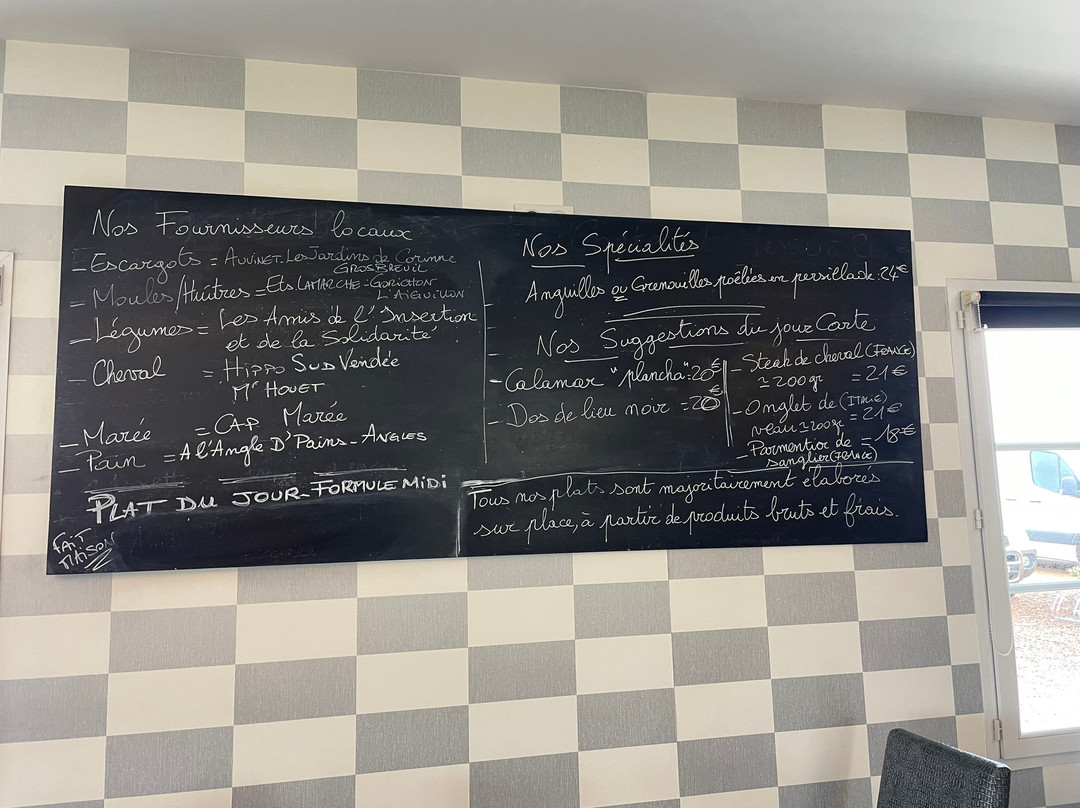 Nos Fournisseurs locaux
- Escargots = AUVINET. Les Jardins de Corinne
GROSBREUIL
- Moules/Huîtres = Ets LAMARCHE - GORICHON
L'AIGUILLON
- Légumes = Les Amis de l'Insertion
et de la Solidarité
- Cheval = HIPPO SUD VENDÉE
Mr HOUET
- Marée = CAP Marée
- Pain = A l'ANGLE D'PAINS - ANGLES
PLAT DU JOUR - FORMULE MIDI
FAIT
MAISON
Nos Spécialités
Anguilles ou Grenouilles poêlées en persillade : 24€
Nos Suggestions du jour Carte
- Calamar "plancha" : 20€
- Dos de lieu noir = 20€
- Steak de cheval (FRANCE)
≃ 200gr = 21€
- Onglet de (ITALIE)
veau ≃ 200gr = 21€
- Parmentier de = 18€
sanglier (FRANCE)
Tous nos plats sont majoritairement élaborés
sur place, à partir de produits bruts et frais.